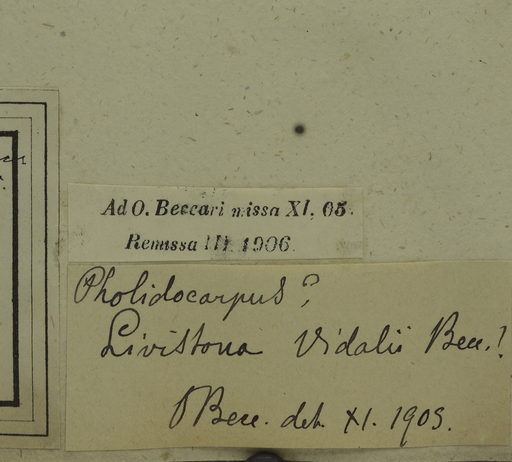 Ad O. Beccari missa XI. 05.
Remissa III. 1906
Pholidocarpus?
Livistona Vidalii Becc.!
OBecc. det. XI. 1905.